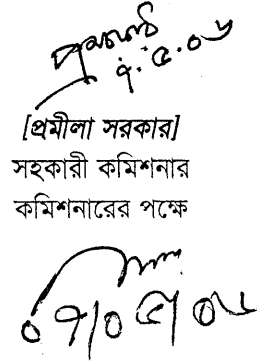 ৭.৫.০৬
[প্রমীলা সরকার]
সহকারী কমিশনার
কমিশনারের পক্ষে
০৭/০৫/০৬